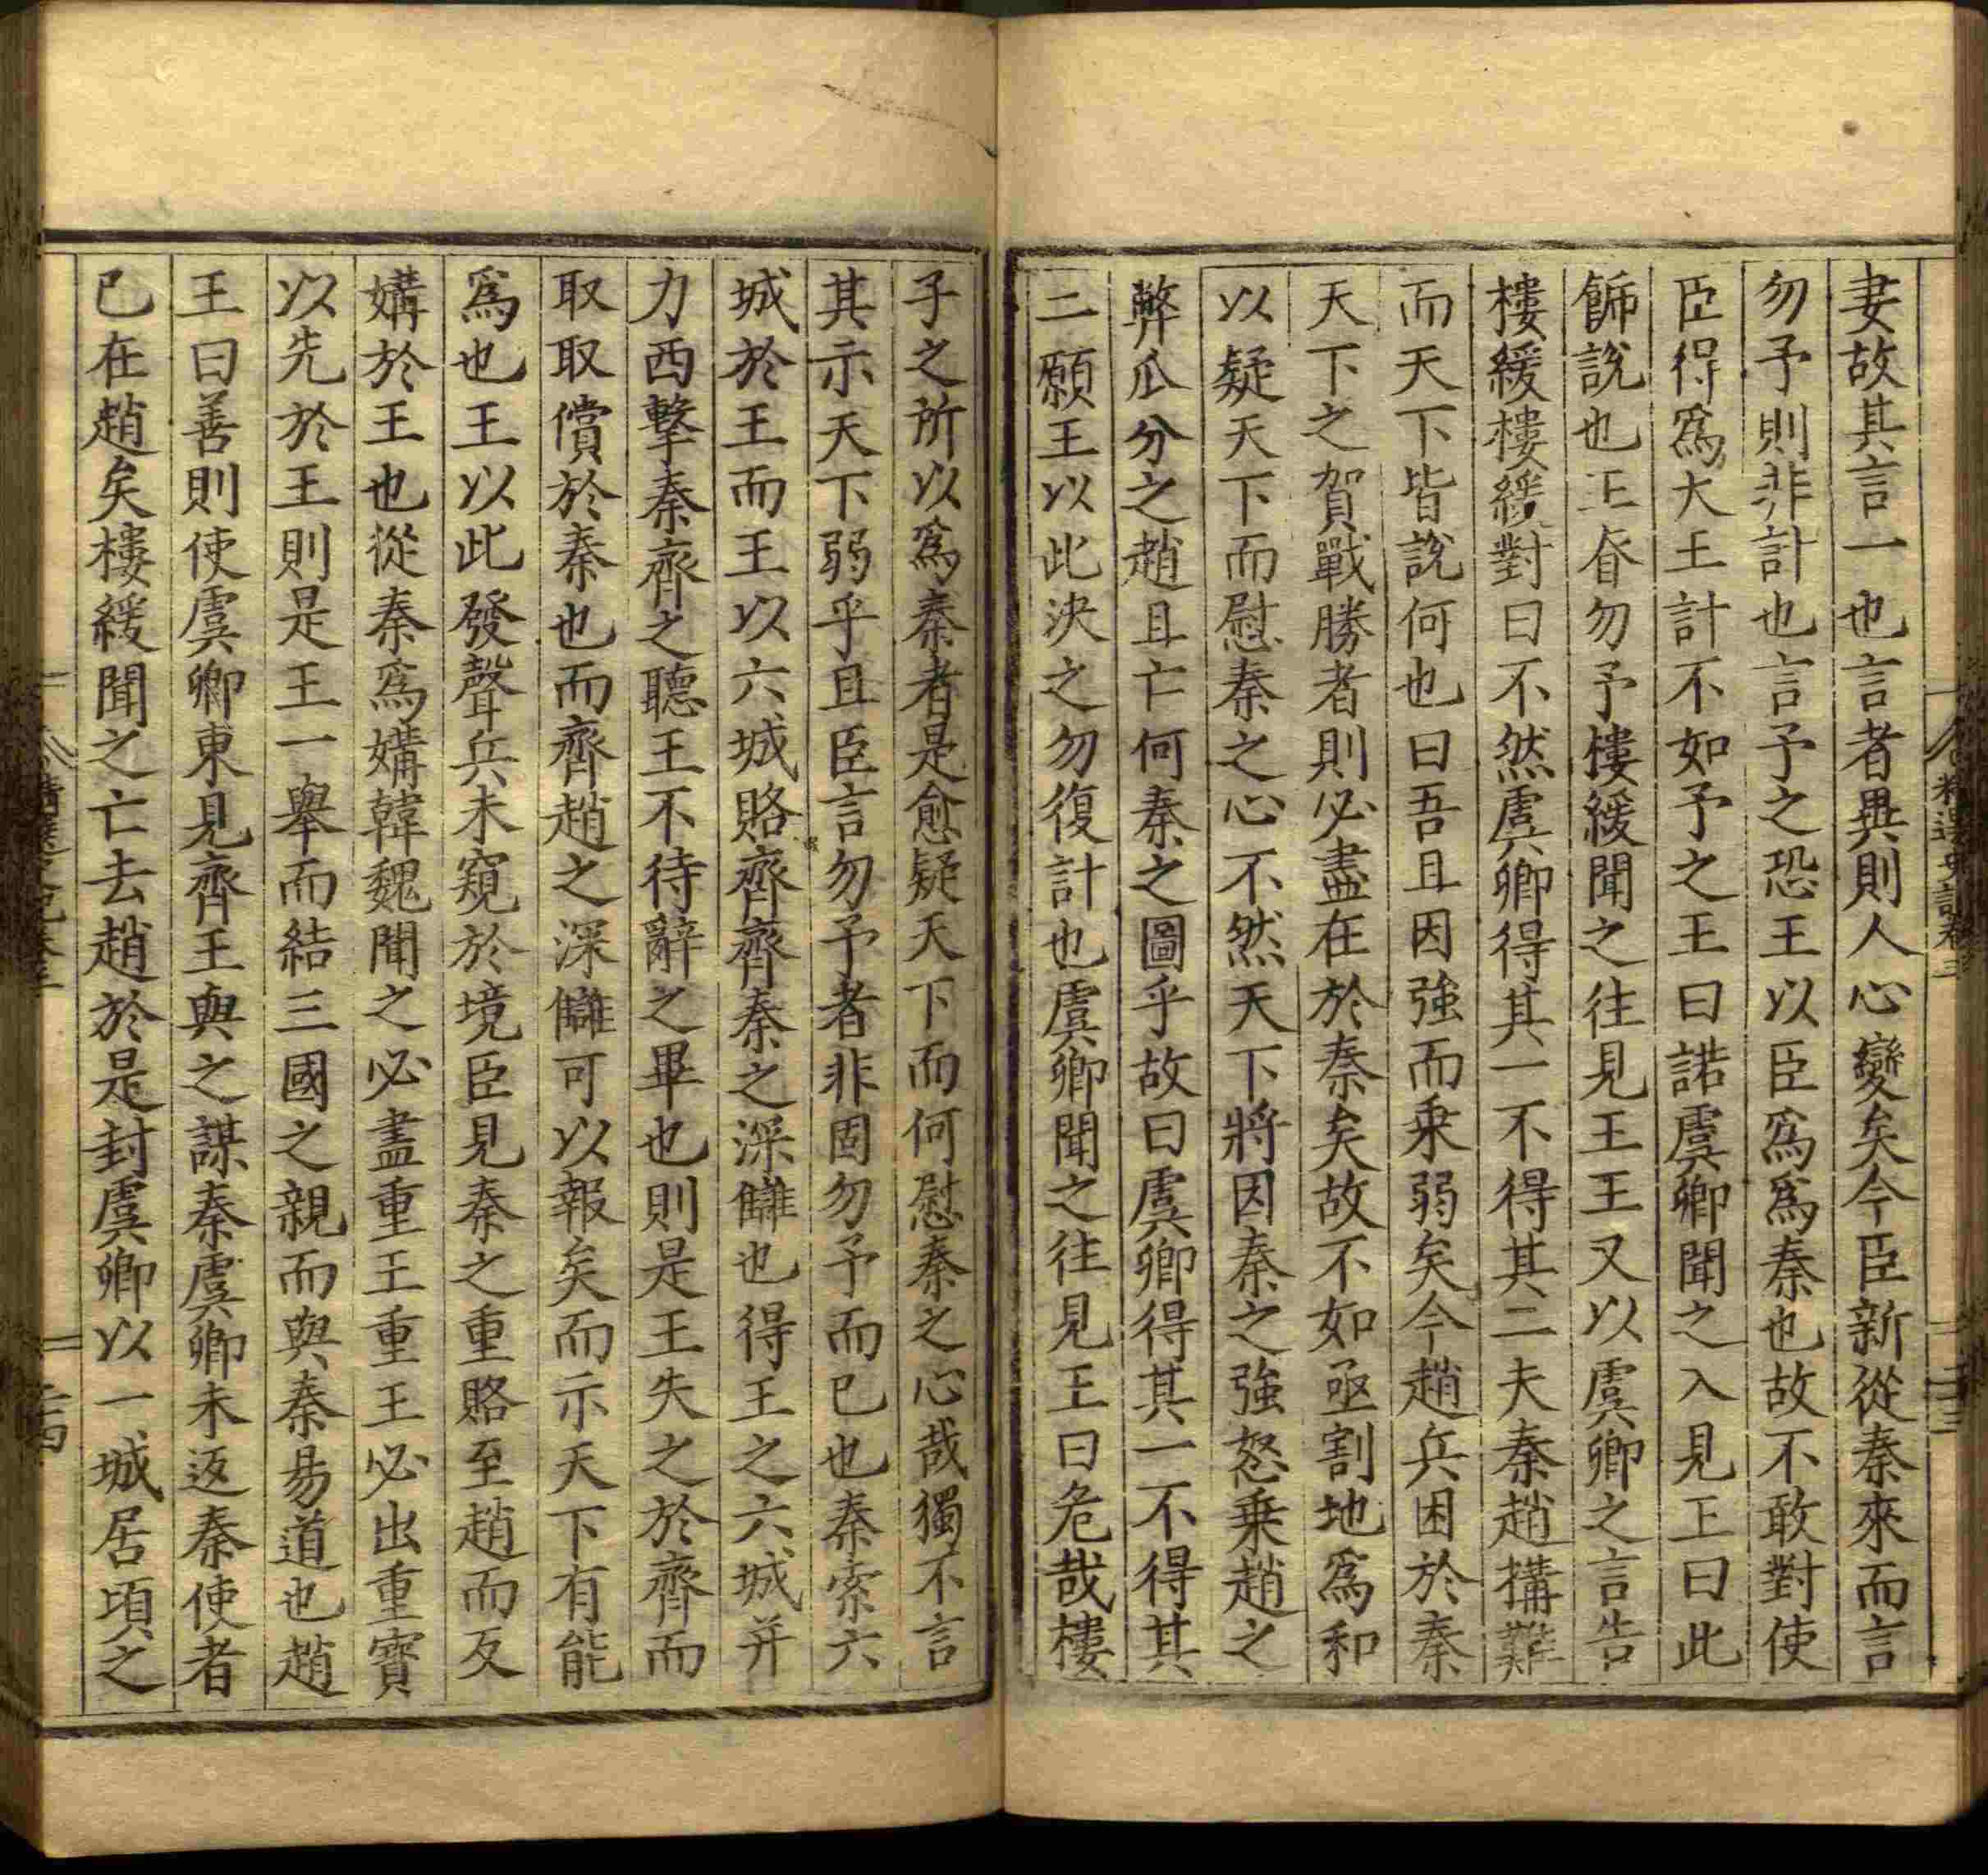 妻故其言一也言者異則人心變矣今臣新從秦來而言
勿予則非計也言予之恐王以臣爲爲秦也故不敢對使
臣得爲大王計不如予之王曰諾虞卿聞之入見王曰此
飾說也王眘勿予樓緩聞之往見王王又以虞卿之言告
樓緩樓緩對曰不然虞卿得其一不得其二夫秦趙搆難
而天下皆說何也曰吾且因強而乗弱矣今趙兵困於秦
天下之賀戰勝者則必盡在於秦矣故不如亟割地爲和
以疑天下而慰秦之心不然天下將因秦之強怒乗趙之
弊瓜分之趙且亡何秦之圖乎故曰虞卿得其一不得其
二願王以此決之勿復計也虞卿聞之往見王曰危哉樓
精選史記卷三
二十三
子之所以爲秦者是愈疑天下而何慰秦之心哉獨不言
其示天下弱乎且臣言勿予者非固勿予而已也秦索六
城於王而王以六城賂齊齊秦之深讎也得王之六城并
力西擊秦齊之聽王不待辭之畢也則是王失之於齊而
取取償於秦也而齊趙之深讎可以報矣而示天下有能
爲也王以此發聲兵未窺於境臣見秦之重賂至趙而反
媾於王也從秦爲媾韓魏聞之必盡重王重王必出重寶
以先於王則是王一舉而結三國之親而與秦易道也趙
王曰善則使虞卿東見齊王與之謀秦虞卿未返秦使者
已在趙矣樓緩聞之亡去趙於是封虞卿以一城居頃之